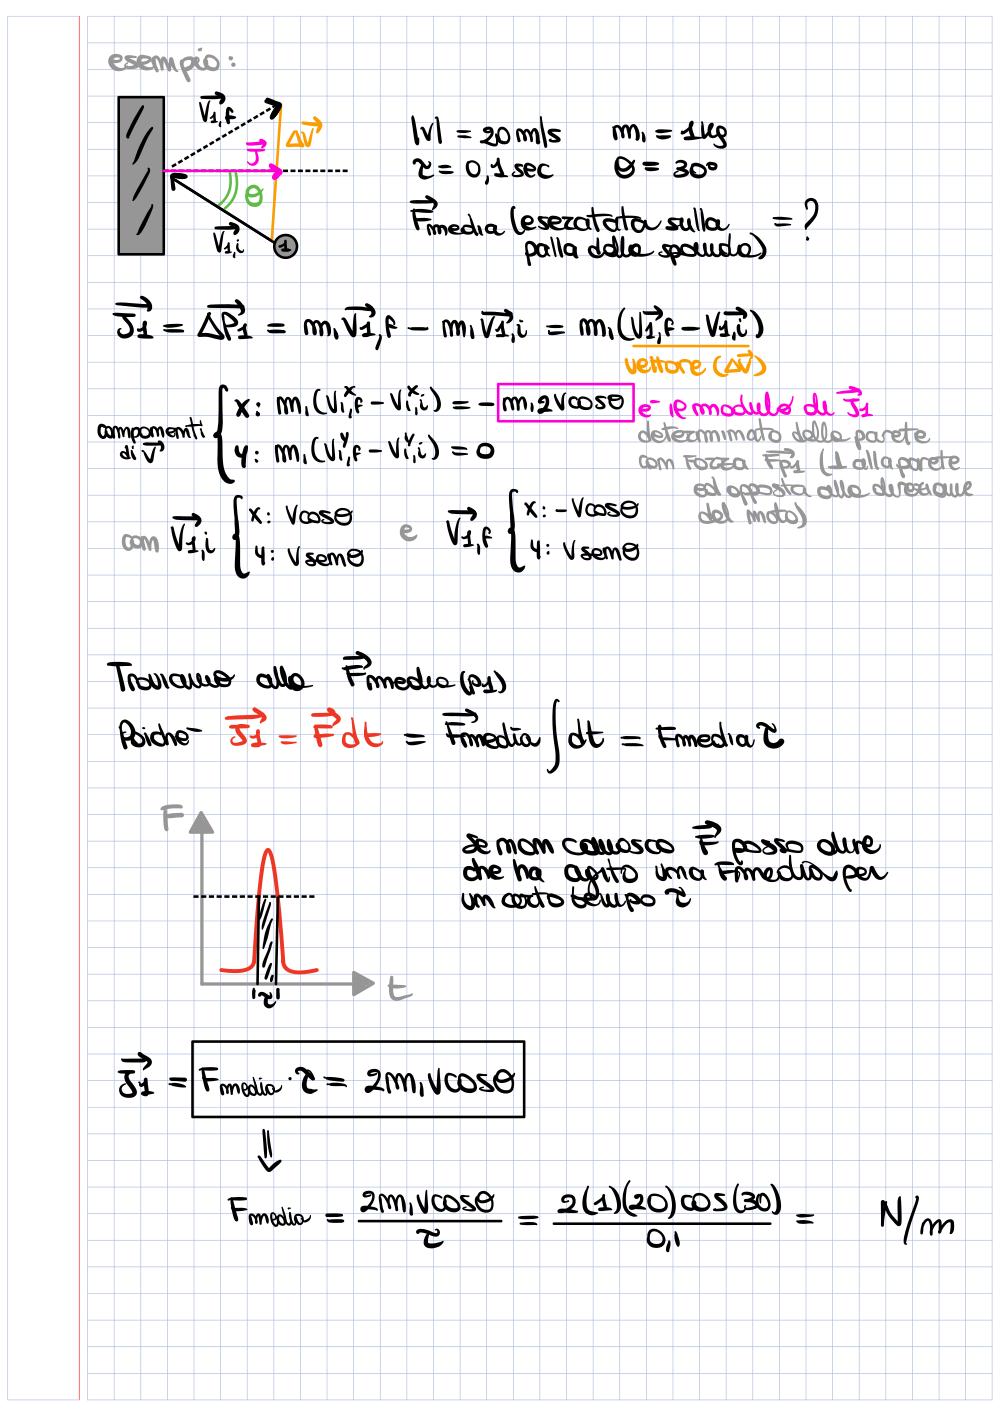 esempio:
V⃗1,f
ΔV⃗
J⃗
θ
V⃗1,i
1
|v| = 20 m/s m₁ = 1 kg
τ = 0,1 sec θ = 30°
F⃗media (esercitata sulla = ?
palla dalla sponda)
J⃗1 = ΔP⃗1 = m₁V⃗1,f – m₁V⃗1,i = m₁(V⃗1,f – V⃗1,i)
vettore (ΔV⃗)
componenti di V⃗
x: m₁(V₁ˣ,f – V₁ˣ,i) = – m₁2Vcosθ
y: m₁(V₁ʸ,f – V₁ʸ,i) = 0
e' il modulo di J⃗1
determinato dalla parete
con Forza F⃗p1 (⊥ alla parete
ed opposta alla direzione
del moto)
con V⃗1,i { x: Vcosθ e V⃗1,f { x: -Vcosθ
y: Vsenθ y: Vsenθ
Troviamo allo F⃗media (p1)
Poiche' J⃗1 = F⃗dt = F⃗media ∫dt = Fmedia τ
F
t
τ
se non conosco F⃗ posso dire
che ha agito una Fmedia per
un certo tempo τ
J⃗1 = Fmedia · τ = 2m₁Vcosθ
⇓
Fmedia = 2m₁Vcosθ / τ = 2(1)(20)cos(30) / 0,1 = N/m